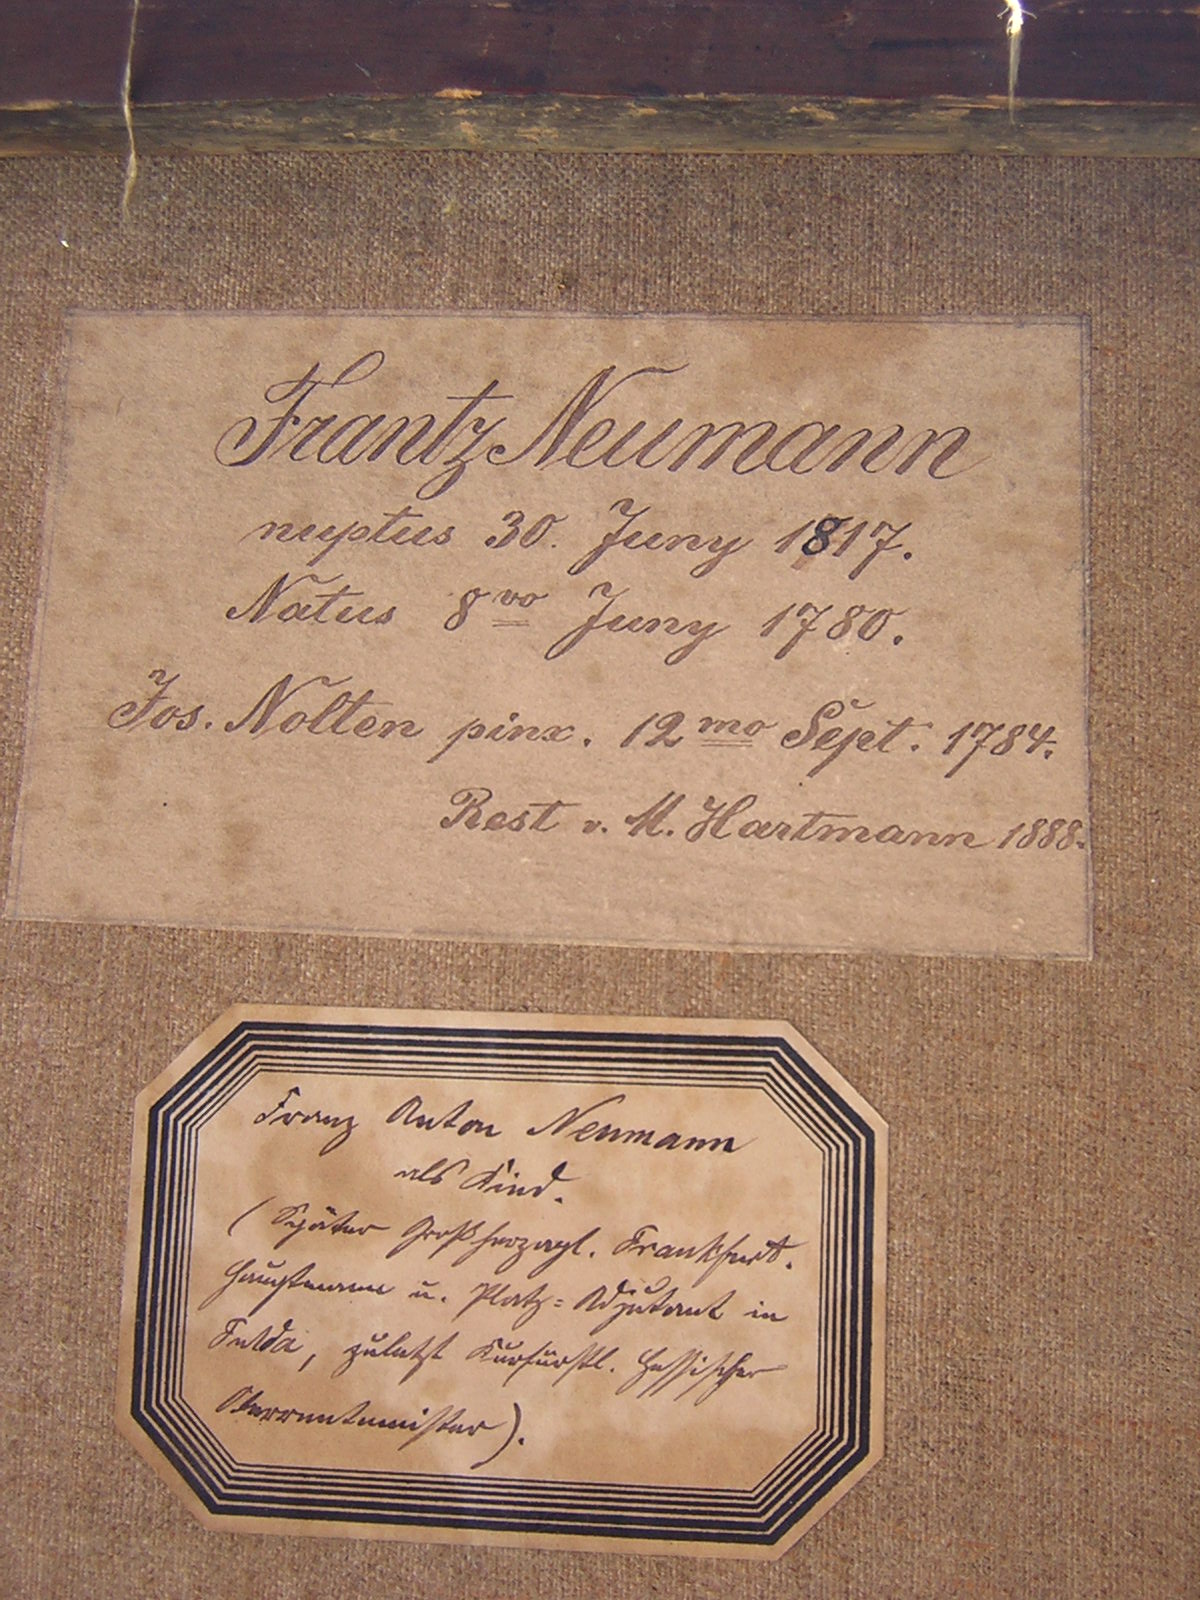 Frantz Neumann
nuptus 30. Juny 1817.
Natus 8vo Juny 1780.
Jos. Nolten pinx. 12mo Sept. 1784.
Rest v. M. Hartmann 1888.
Franz Anton Neumann
als Kind.
(Später Großherzogl. Frankfurt.
Hauptmann u. Platz=Adjutant in
Fulda, zuletzt Kurfürstl. Hessischer
Oberrentmeister).